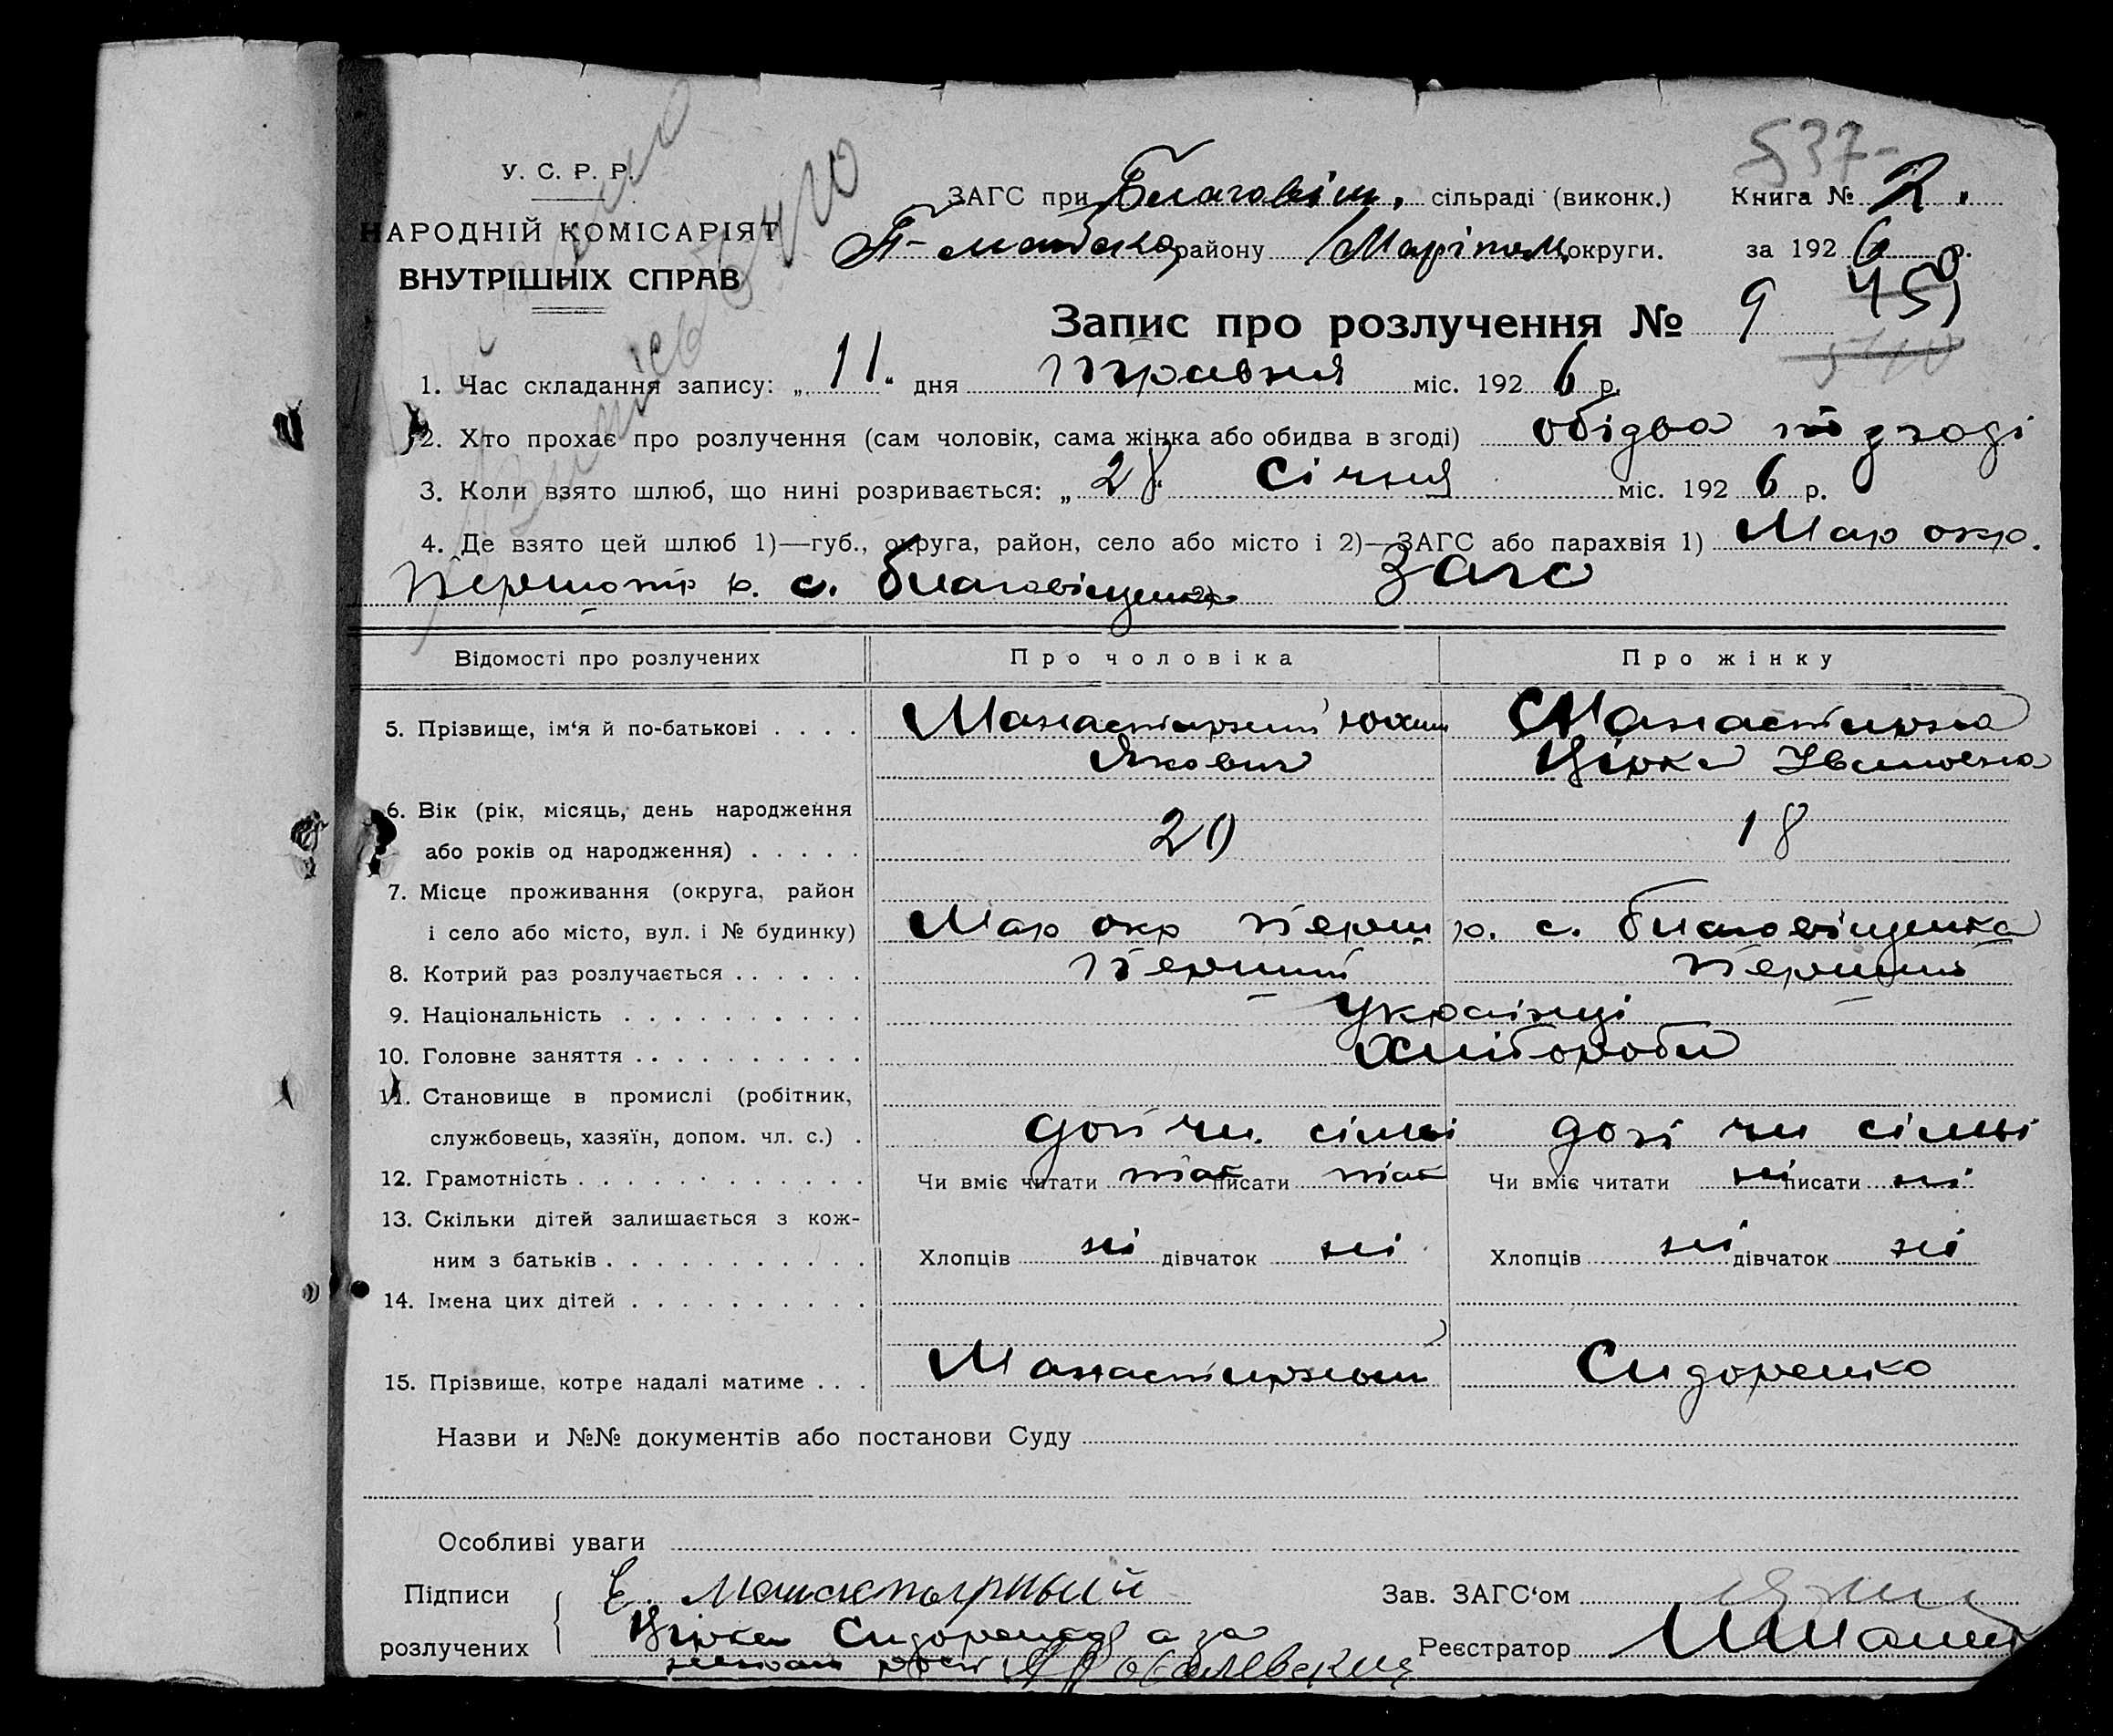 537-
У. С. Р. Р.
НАРОДНІЙ КОМІСАРІЯТ
ВНУТРІШНІХ СПРАВ
ЗАГС при Благовіщ. сільраді (виконк.) Книга № 2.
району Маріюпол округи. за 1926 р.
Запис про розлучення № 9 450
1. Час складання запису: „11" дня травня міс. 1926 р.
2. Хто прохає про розлучення (сам чоловік, сама жінка або обидва в згоді) обідва по згоді
3. Коли взято шлюб, що нині розривається: „28" січня міс. 1926 р.
4. Де взято цей шлюб 1)—губ., округа, район, село або місто і 2)—ЗАГС або парахвія 1) Мар окр.
Першотр р. с. благовіщенка 2) загс
Відомості про розлучених Про чоловіка Про жінку
5. Прізвище, ім‘я й по-батькові . . . . Манастирний Юхим Манастирна
Якович Івановна
6. Вік (рік, місяць, день народження
або років од народження) . . . . . 20 18
7. Місце проживання (округа, район
і село або місто, вул. і № будинку) Мар окр перш р. с. благовіщенка
8. Котрий раз розлучається . . . . . . перший перший
9. Національність . . . . . . . . . . українці
10. Головне заняття . . . . . . . . . . хлібороби
11. Становище в промислі (робітник,
службовець, хазяїн, допом. чл. с.) . доп чл. сімьї доп чл сімьї
12. Грамотність . . . . . . . . . . . . . Чи вміє читати так писати так Чи вміє читати ні писати ні
13. Скільки дітей залишається з кож-
ним з батьків . . . . . . . . . . . . Хлопців ні дівчаток ні Хлопців ні дівчаток ні
14. Імена цих дітей . . . . . . . . . .
15. Прізвище, котре надалі матиме . . . Манастирный Сидоренко
Назви и №№ документів або постанови Суду
Особливі уваги
Підписи Е. Манастырный Зав. ЗАГС‘ом
розлучених Сидоренко а за Реєстратор